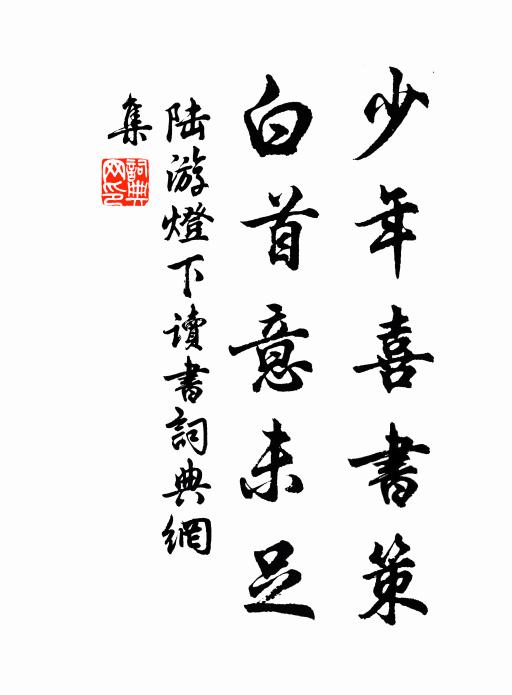 少年喜書策
白首意未足
陸游燈下讀書詞典網
集
詞典網印